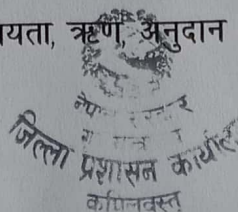 यता, ऋण, अनुदान
नेपाल सरकार
जिल्ला प्रशासन कार्याल
कपिलवस्तु